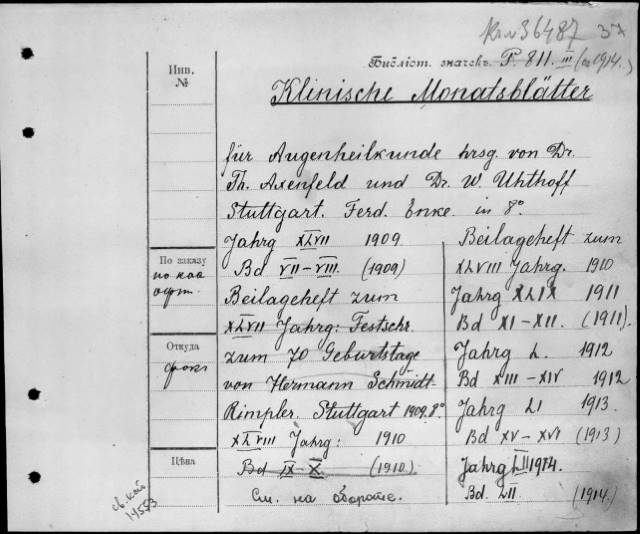 36487 37
Библіот. значекъ. P. 811. III (с 1914.)
Инв.
№
Klinische Monatsblätter
für Augenheilkunde hrsg. von Dr.
Th. Axenfeld und Dr. W. Uhthoff
Stuttgart. Ferd. Enke. in 8°.
Jahrg XLVII 1909
Bd VII-VIII. (1909)
Beilageheft zum
XLVII Jahrg: Festschr.
zum 70 Geburtstage
von Hermann Schmidt-
Rimpler. Stuttgart 1909. 8°
XLVIII Jahrg: 1910
Bd IX-X. (1910)
См. на обороте.
Beilageheft zum
XLVIII Jahrg. 1910
Jahrg XLIX 1911
Bd XI-XII. (1911)
Jahrg L. 1912
Bd XIII-XIV 1912
Jahrg LI 1913.
Bd XV-XVI (1913)
Jahrg LII 1914.
Bd. LII. (1914.)
По заказу
Откуда
Цѣна
14553